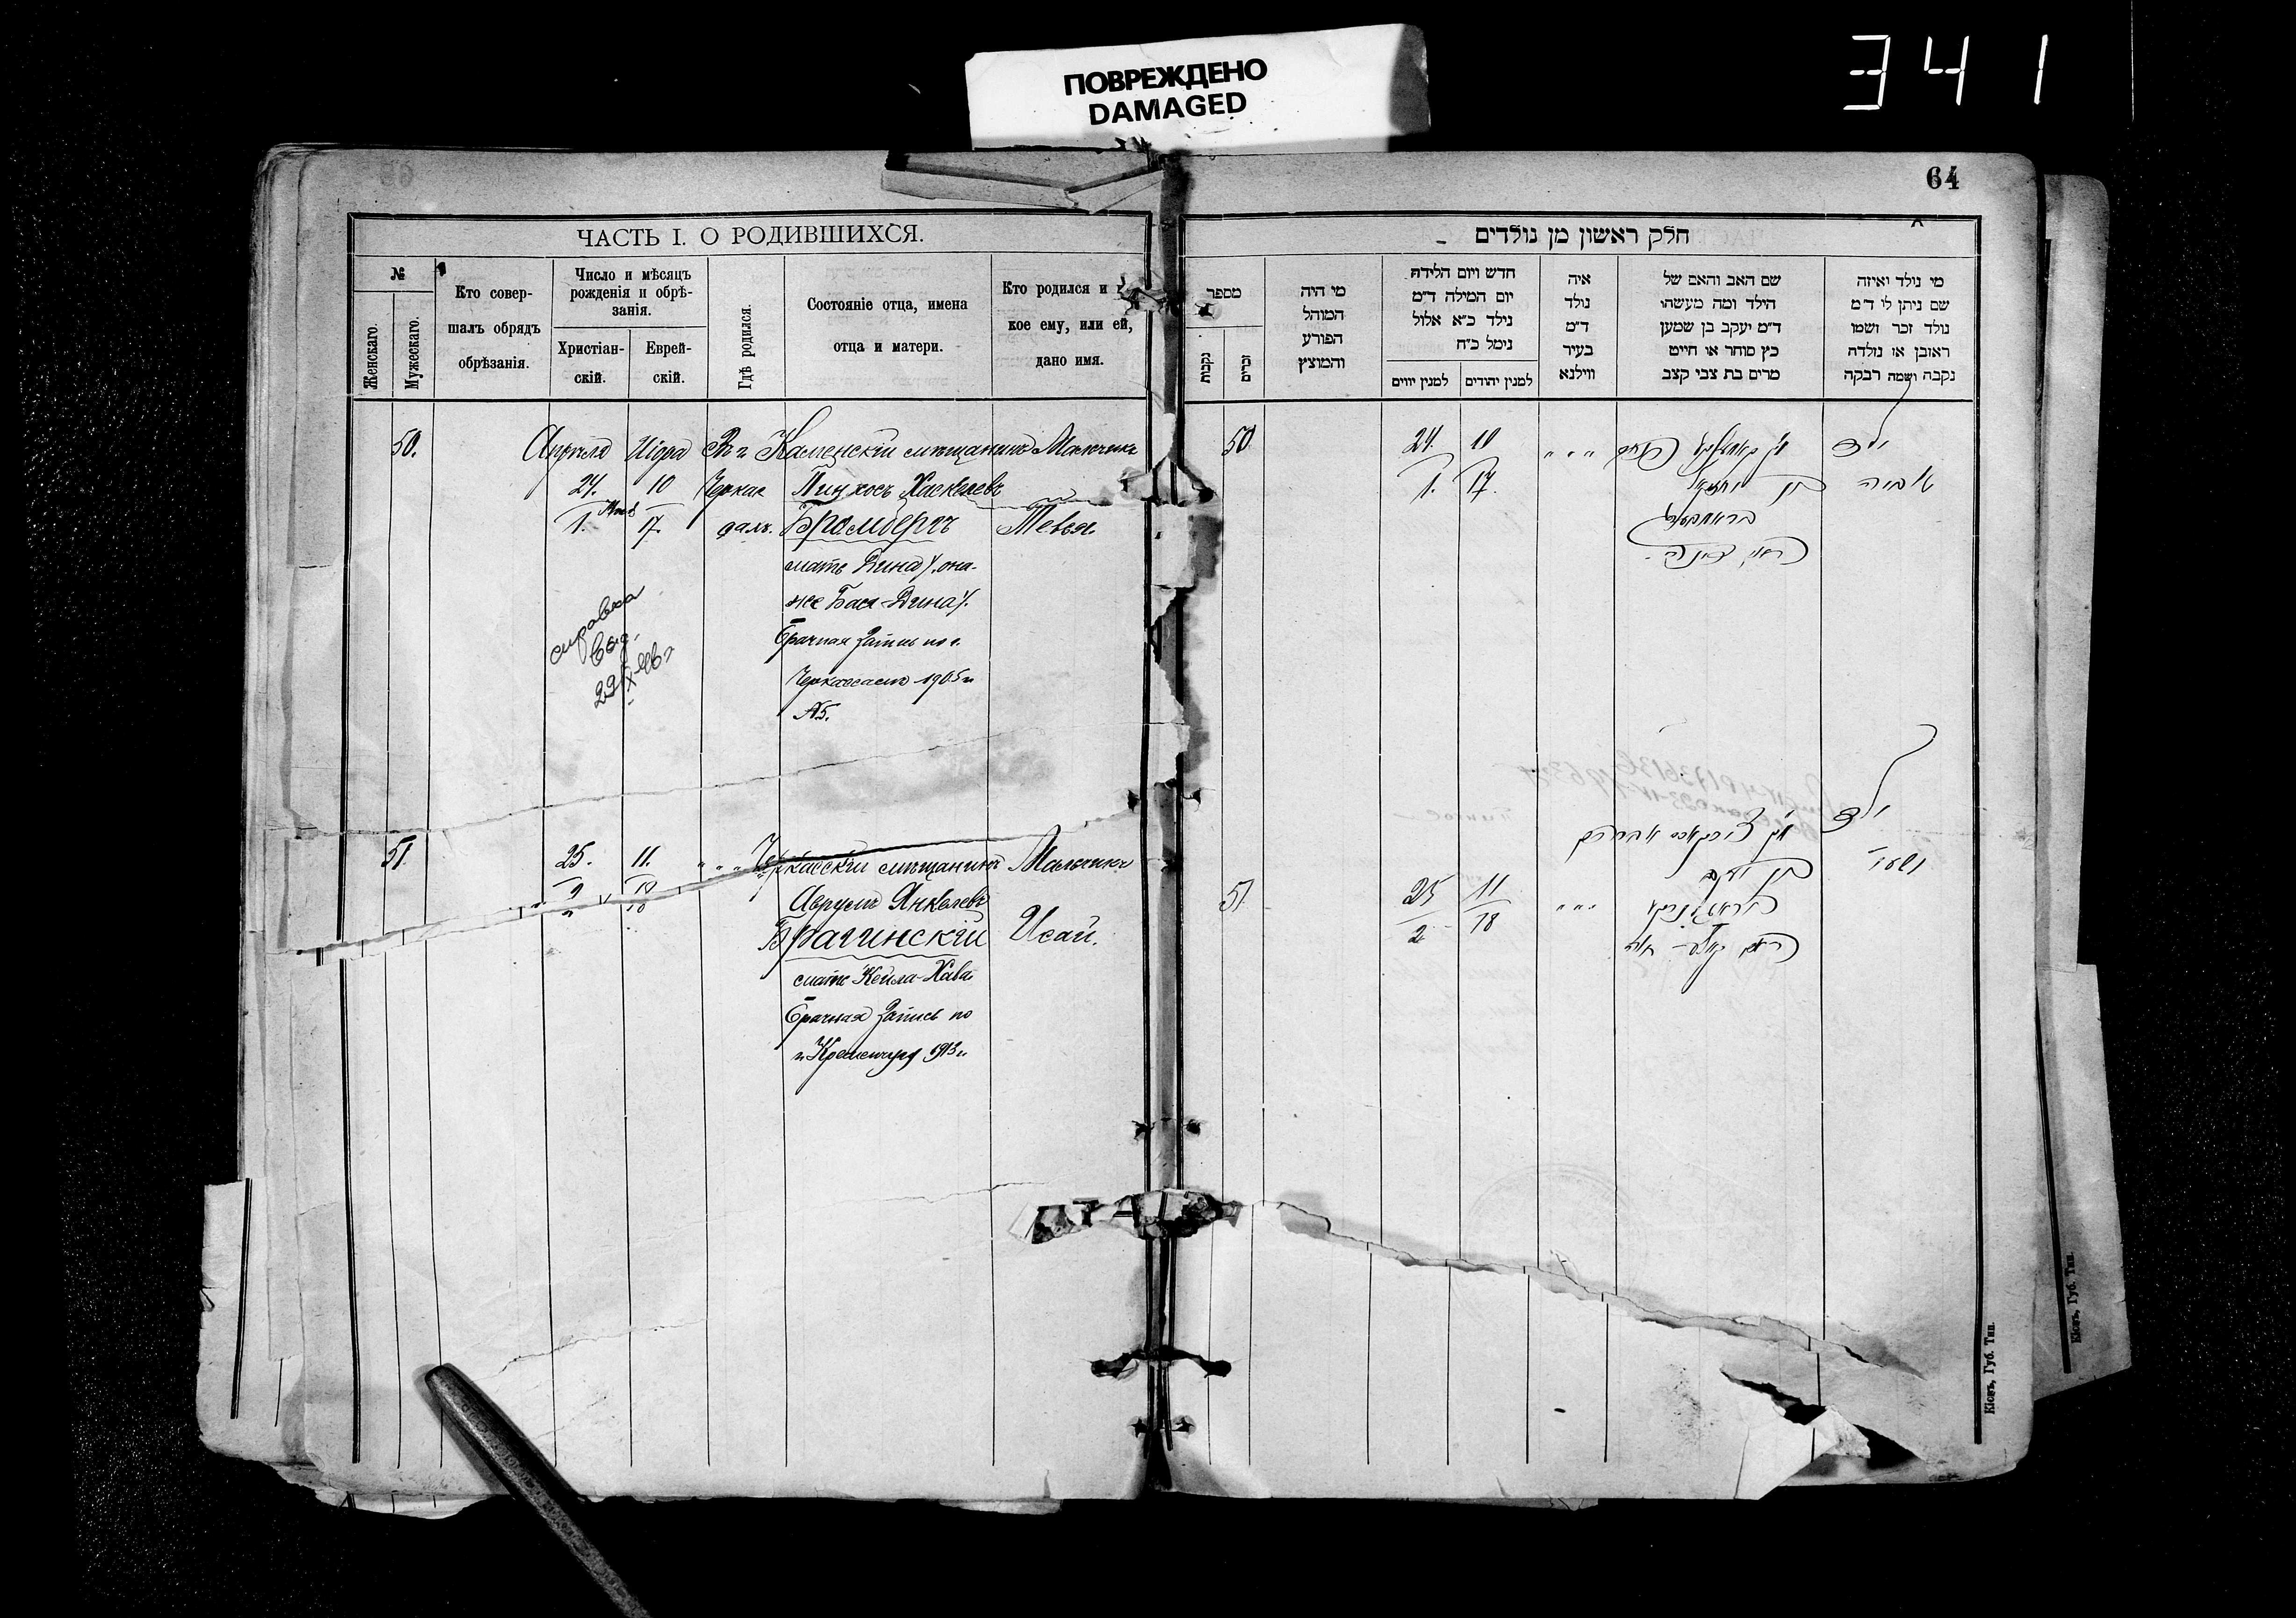 ПОВРЕЖДЕНО
DAMAGED
341
64
ЧАСТЬ I. О РОДИВШИХСЯ.
№
Женскаго.
Мужескаго.
Кто совер-
шалъ обрядъ
обрѣзанія.
Число и мѣсяцъ
рожденія и обрѣ-
занія.
Христіан-
скій.
Еврей-
скій.
Гдѣ родился.
Состояніе отца, имена
отца и матери.
Кто родился и
кое ему, или ей,
дано имя.
50.
Апрѣля
24.
1. Мая
Иіора
10
17.
Въ г
Черкас
сахъ.
Каменскій мѣщанинъ
Пинхосъ Хаскелевъ
Бромбергъ
мать Дина /она-
же Бася-Дина/.
Брачная Запись по г.
Черкассамъ 1905 г
№5.
Мальчикъ
Тевья.
справка
выд.
29/X-46 г
51.
25.
2
11.
18
" " "
Черкасскій мѣщанинъ
Аврумъ Янкелевъ
Брагинскій
мать Кейла-Хава
Брачная Запись по
г. Кременчугу 1913 г.
Мальчикъ
Исай.
חלק ראשון מן נולדים
מי נולד ואיזה
שם ניתן לו ד״מ
נולד זכר ושמו
ראובן או נולדה
נקבה ושמה רבקה
שם האב והאם של
הילד ומה מעשהו
ד״מ יעקב בן שמען
כץ סוחר או חייט
מרים בת צבי קצב
איה
נולד
ד״מ
בעיר
ווילנא
חדש ויום הלידה
יום המילה ד״מ
נילד כ״א אלול
נימל כ״ח
למנין יהודים
למנין יווים
מי היה
המוהל
הפורע
והמוצץ
מספר
זכרים
נקבות
50
24.
1.
10
17.
" " "
ילד
טביה
בן יחזקאל
בראמבערג
51
25
2
11
18
" " "
ילד
ישעי'
בן יעקב
בראגינסקי
Кіевъ, Губ. Тип.
Кіевъ, Губ. Тип.